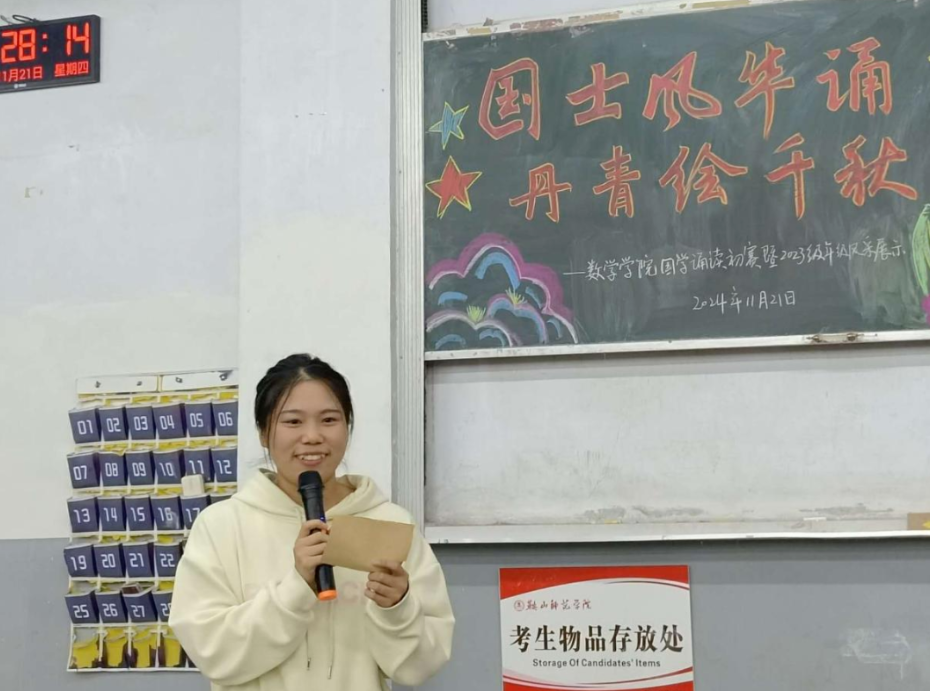 28:14
1月21日 星期四
国士风华诵
丹青绘千秋
—数学学院国学诵读初赛暨2023级年级风采展示
2024年11月21日
01 02 03 04 05 06
07 08 09 10 11 12
13 14 15 16 17
19 20 21 22
25 26 27
鞍山师范学院
考生物品存放处
Storage Of Candidates' Items